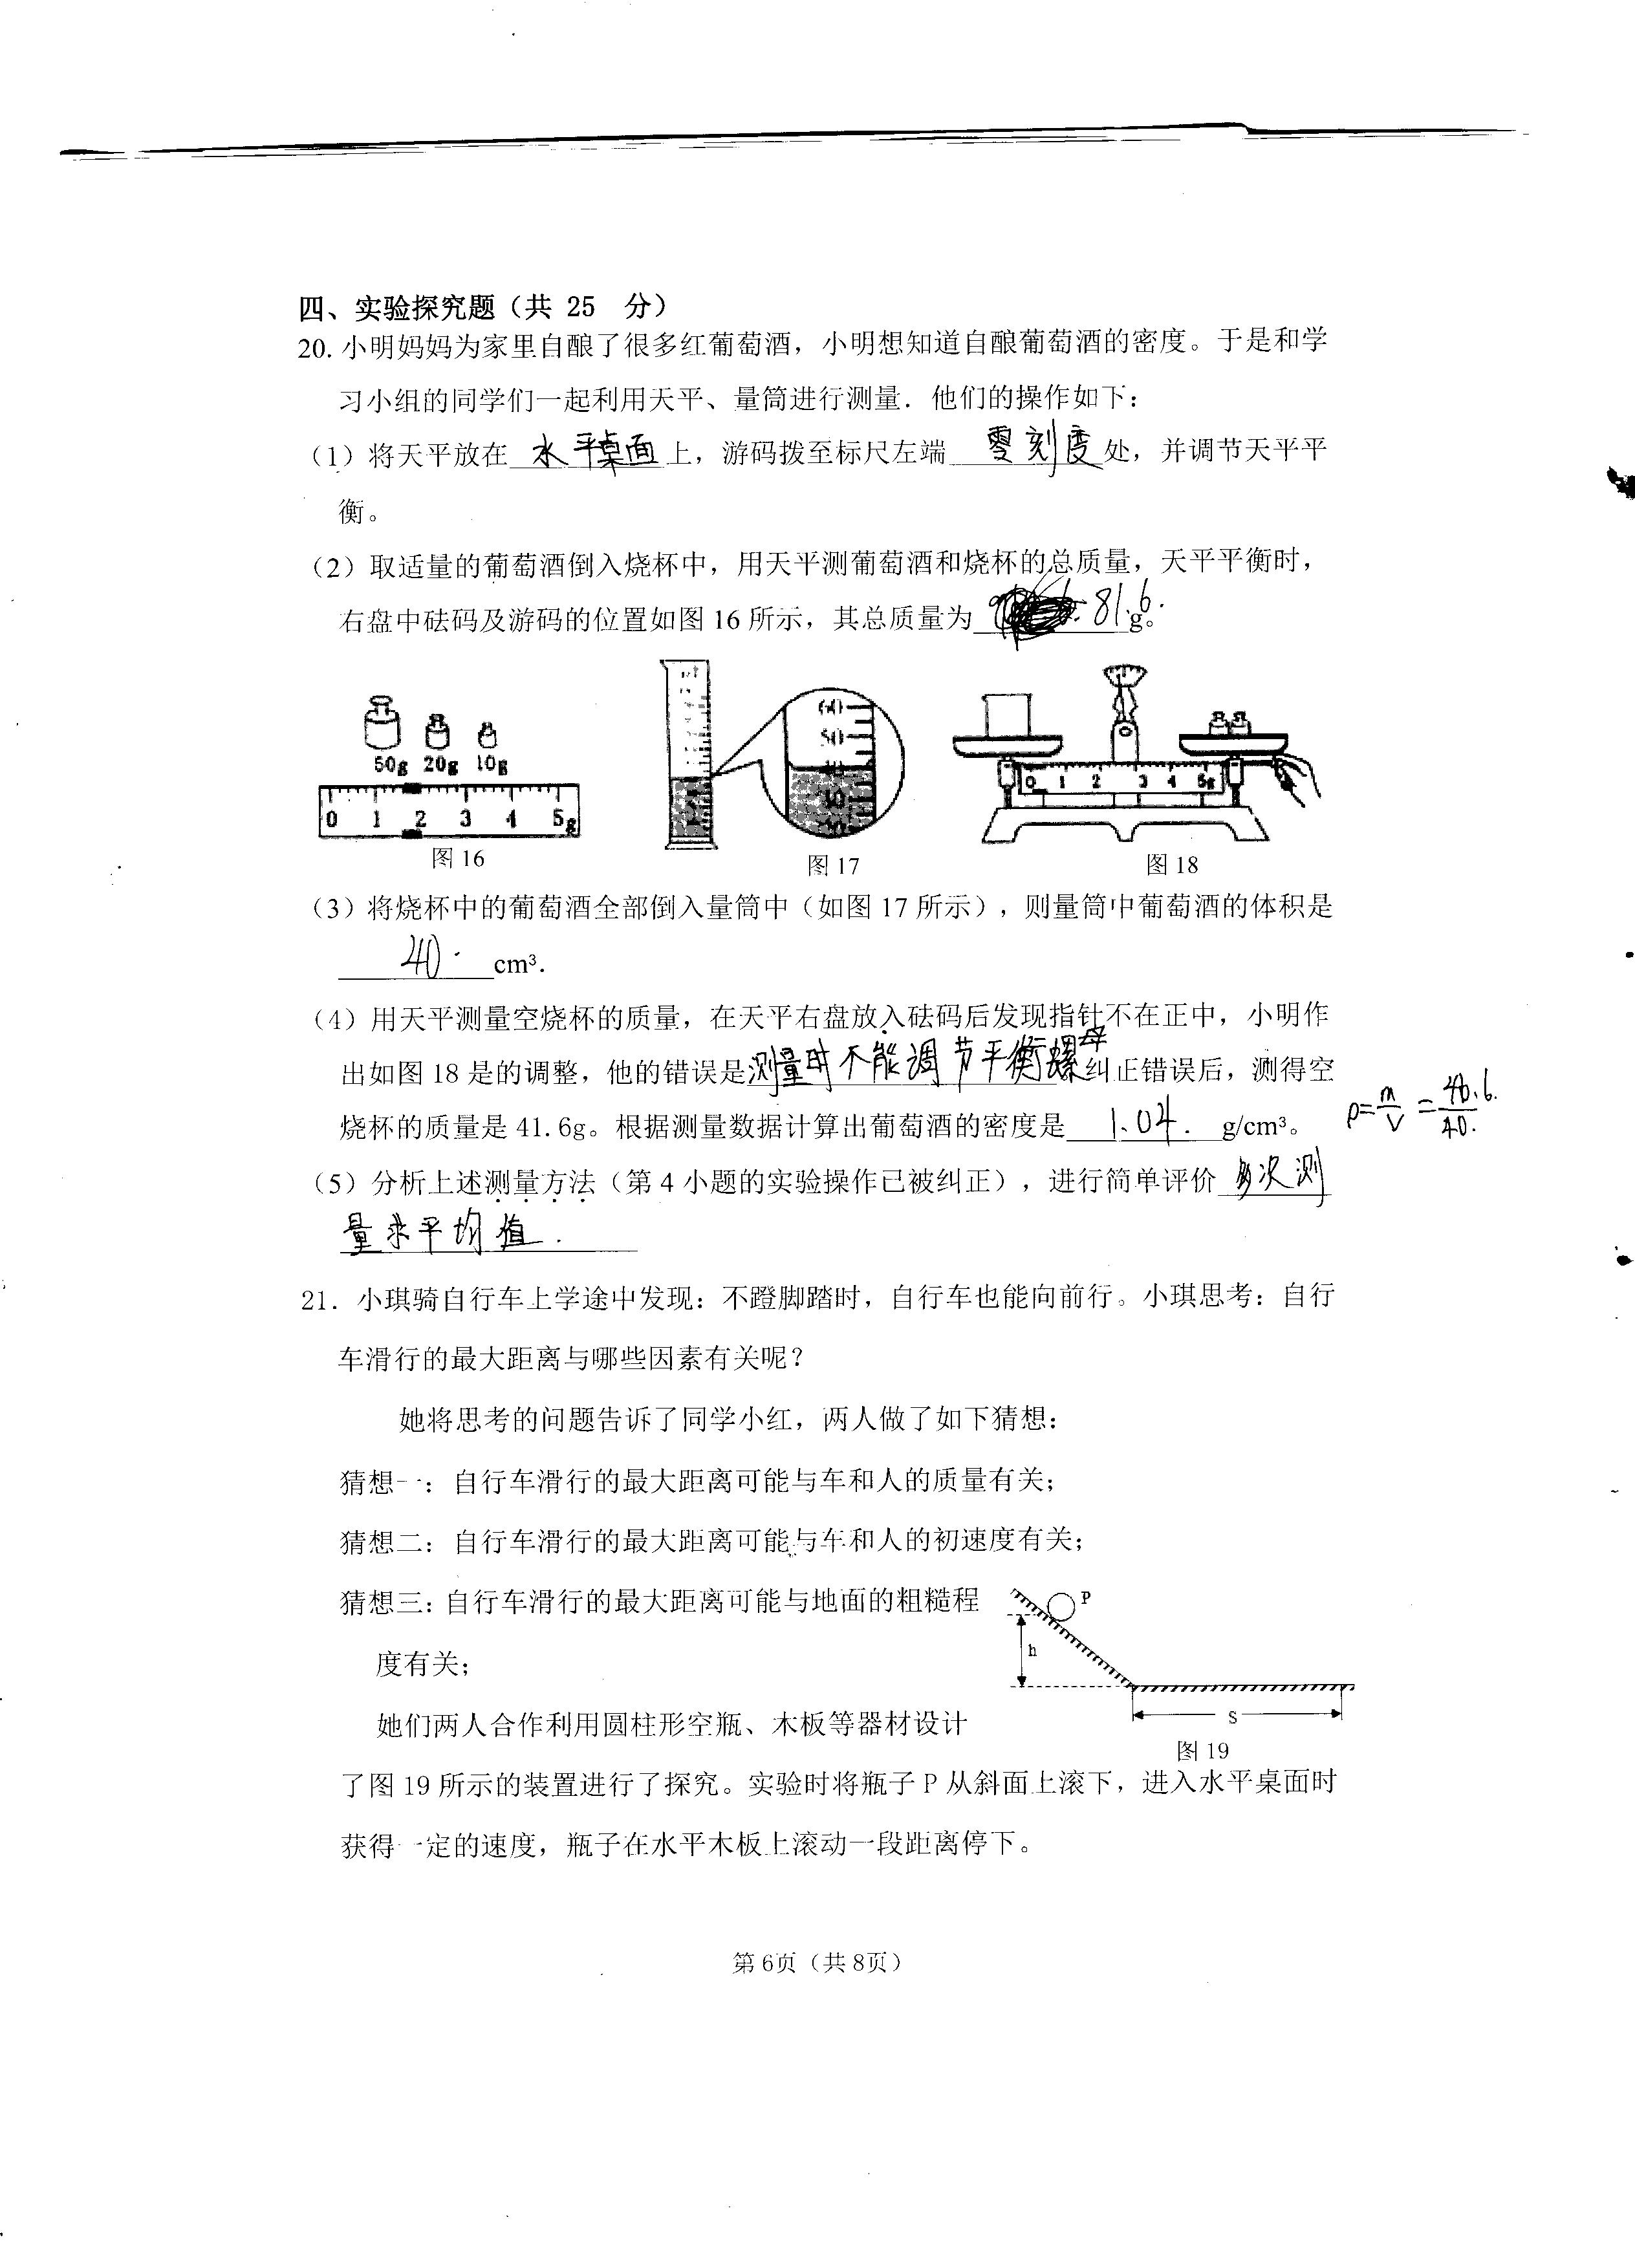 四、实验探究题（共 25 分）
20. 小明妈妈为家里自酿了很多红葡萄酒，小明想知道自酿葡萄酒的密度。于是和学
习小组的同学们一起利用天平、量筒进行测量．他们的操作如下：
（1）将天平放在 水平桌面 上，游码拨至标尺左端 零刻度 处，并调节天平平
衡。
（2）取适量的葡萄酒倒入烧杯中，用天平测葡萄酒和烧杯的总质量，天平平衡时，
右盘中砝码及游码的位置如图 16 所示，其总质量为 81.6 g。
50g 20g 10g
0 1 2 3 4 5g
60
50
40
30
20
0 1 2 3 4 5g
图 16
图 17
图 18
（3）将烧杯中的葡萄酒全部倒入量筒中（如图 17 所示），则量筒中葡萄酒的体积是
40. cm³．
（4）用天平测量空烧杯的质量，在天平右盘放入砝码后发现指针不在正中，小明作
出如图 18 是的调整，他的错误是 测量时不能调节平衡螺母 纠正错误后，测得空
烧杯的质量是 41.6g。根据测量数据计算出葡萄酒的密度是 1.04. g/cm³。
ρ=m/V=40.6/40.
（5）分析上述测量方法（第 4 小题的实验操作已被纠正），进行简单评价 多次测
量求平均值.
21．小琪骑自行车上学途中发现：不蹬脚踏时，自行车也能向前行。小琪思考：自行
车滑行的最大距离与哪些因素有关呢？
她将思考的问题告诉了同学小红，两人做了如下猜想：
猜想一：自行车滑行的最大距离可能与车和人的质量有关；
猜想二：自行车滑行的最大距离可能与车和人的初速度有关；
猜想三：自行车滑行的最大距离可能与地面的粗糙程
度有关；
P
h
S
图 19
她们两人合作利用圆柱形空瓶、木板等器材设计
了图 19 所示的装置进行了探究。实验时将瓶子 P 从斜面上滚下，进入水平桌面时
获得一定的速度，瓶子在水平木板上滚动一段距离停下。
第 6页（共 8页）